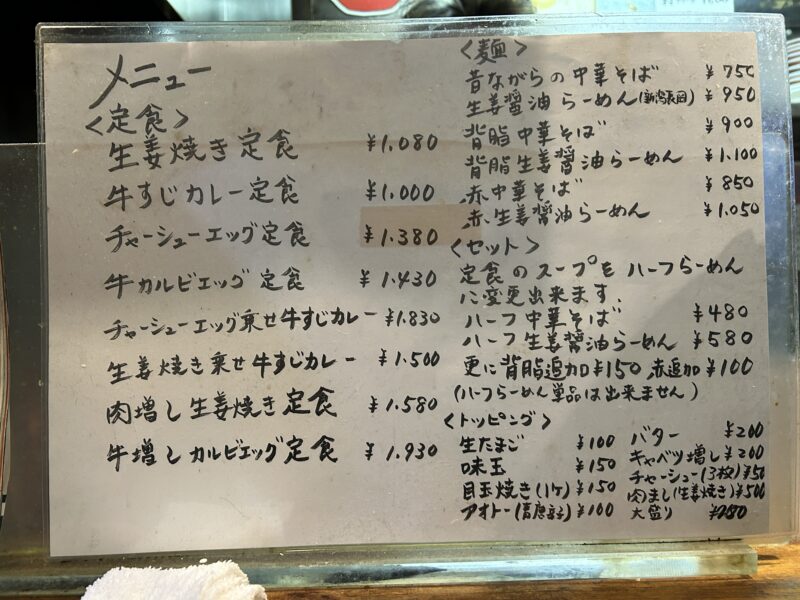 メニュー
<定食>
生姜焼き定食 ¥1.080
牛すじカレー定食 ¥1.000
チャーシューエッグ定食 ¥1.380
牛カルビエッグ定食 ¥1.430
チャーシューエッグ乗せ牛すじカレー ¥1.830
生姜焼き乗せ牛すじカレー ¥1.500
肉増し生姜焼き定食 ¥1.580
牛増しカルビエッグ定食 ¥1.930
<麺>
昔ながらの中華そば ¥750
生姜醤油らーめん(新潟長岡) ¥950
背脂中華そば ¥900
背脂生姜醤油らーめん ¥1.100
赤中華そば ¥850
赤生姜醤油らーめん ¥1.050
<セット>
定食のスープを ハーフらーめん
に変更出来ます.
ハーフ中華そば ¥480
ハーフ生姜醤油らーめん ¥580
更に背脂追加¥150 赤追加¥100
(ハーフらーめん単品は出来ません)
<トッピング>
生たまご ¥100
味玉 ¥150
目玉焼き(1ケ) ¥150
アオトー(青唐辛子) ¥100
バター ¥200
キャベツ増し ¥200
チャーシュー(3枚)
肉まし(生姜焼き) ¥500
大盛り